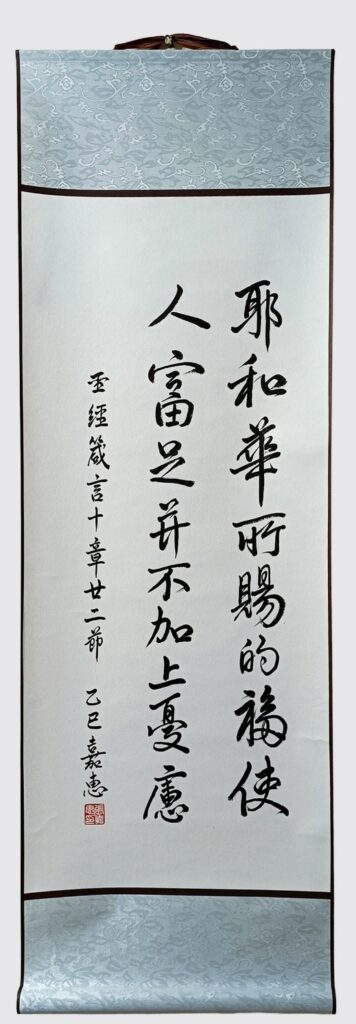 耶和華所賜的福使
人富足并不加上憂慮
圣經箴言十章廿二節 乙巳嘉惠